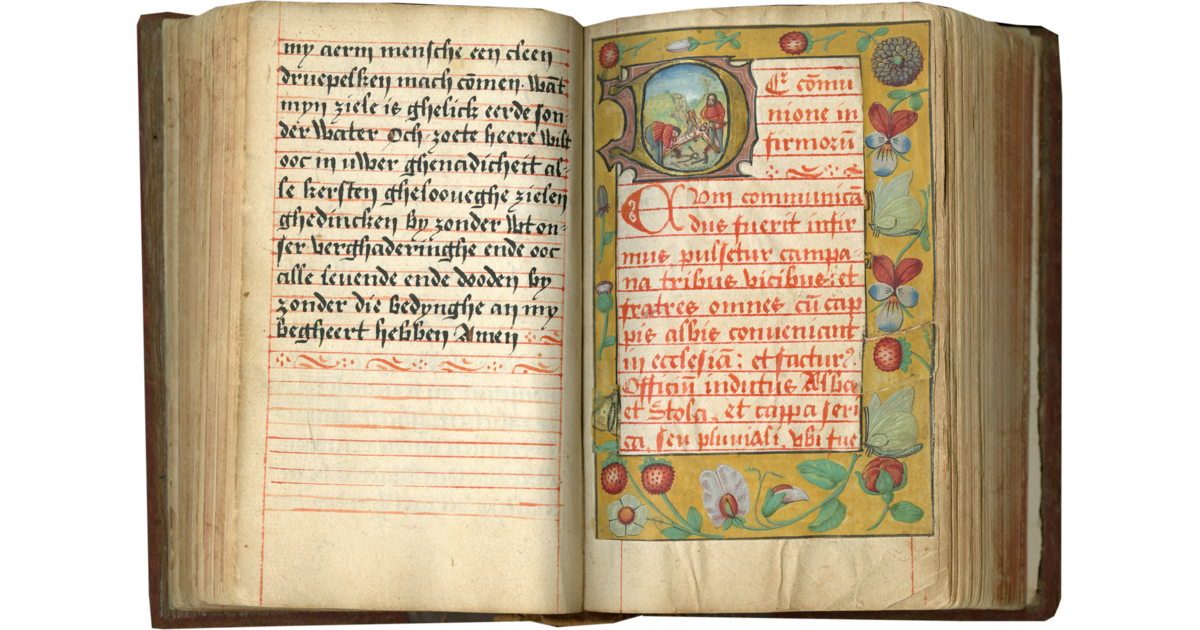 my aerm mensche een cleen
druepelken mach cōmen. Wāt
myn ziele is ghelick eerde son-
der Water Och zoete heere Wilt
ooc in uwer ghenadicheit al-
le kersten ghelooueghe zielen
ghedincken by zonder Wt on-
ser verghaderinghe ende ooc
alle leuende ende dooden by
zonder die bedynghe an my
begheert hebben Amen
DE cōmu
nione in
firmorū
Cum communicā
dus fuerit infir
mus pulsetur campa
na tribus vicibus: et
fratres omnes cū cap
pis albis conueniant
in ecclesiā: et factur⁹
Officiū indutus Alba
et Stola, et cappa seri
ca, seu pluuiali, vbi fue